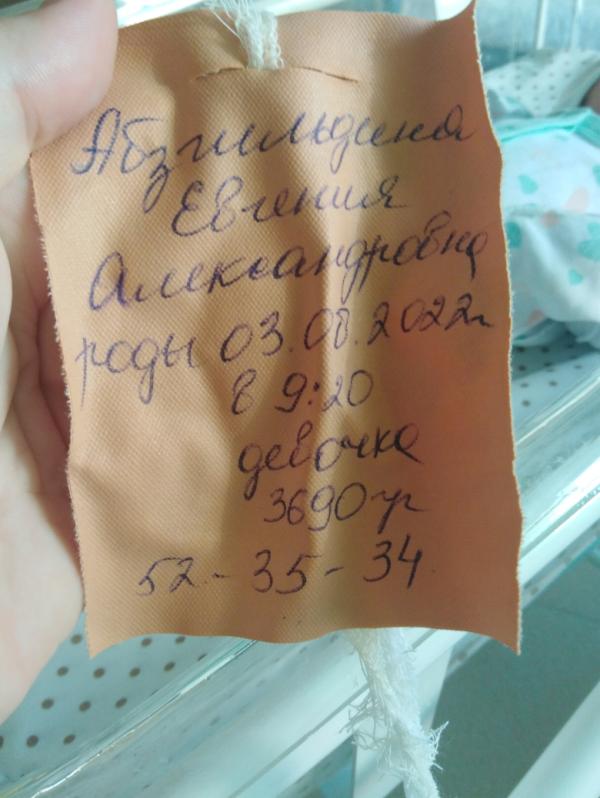 Абзгильдина
Евгения
Александровна
роды 03.08.2022г
в 9:20
девочка
3690гр
52-35-34